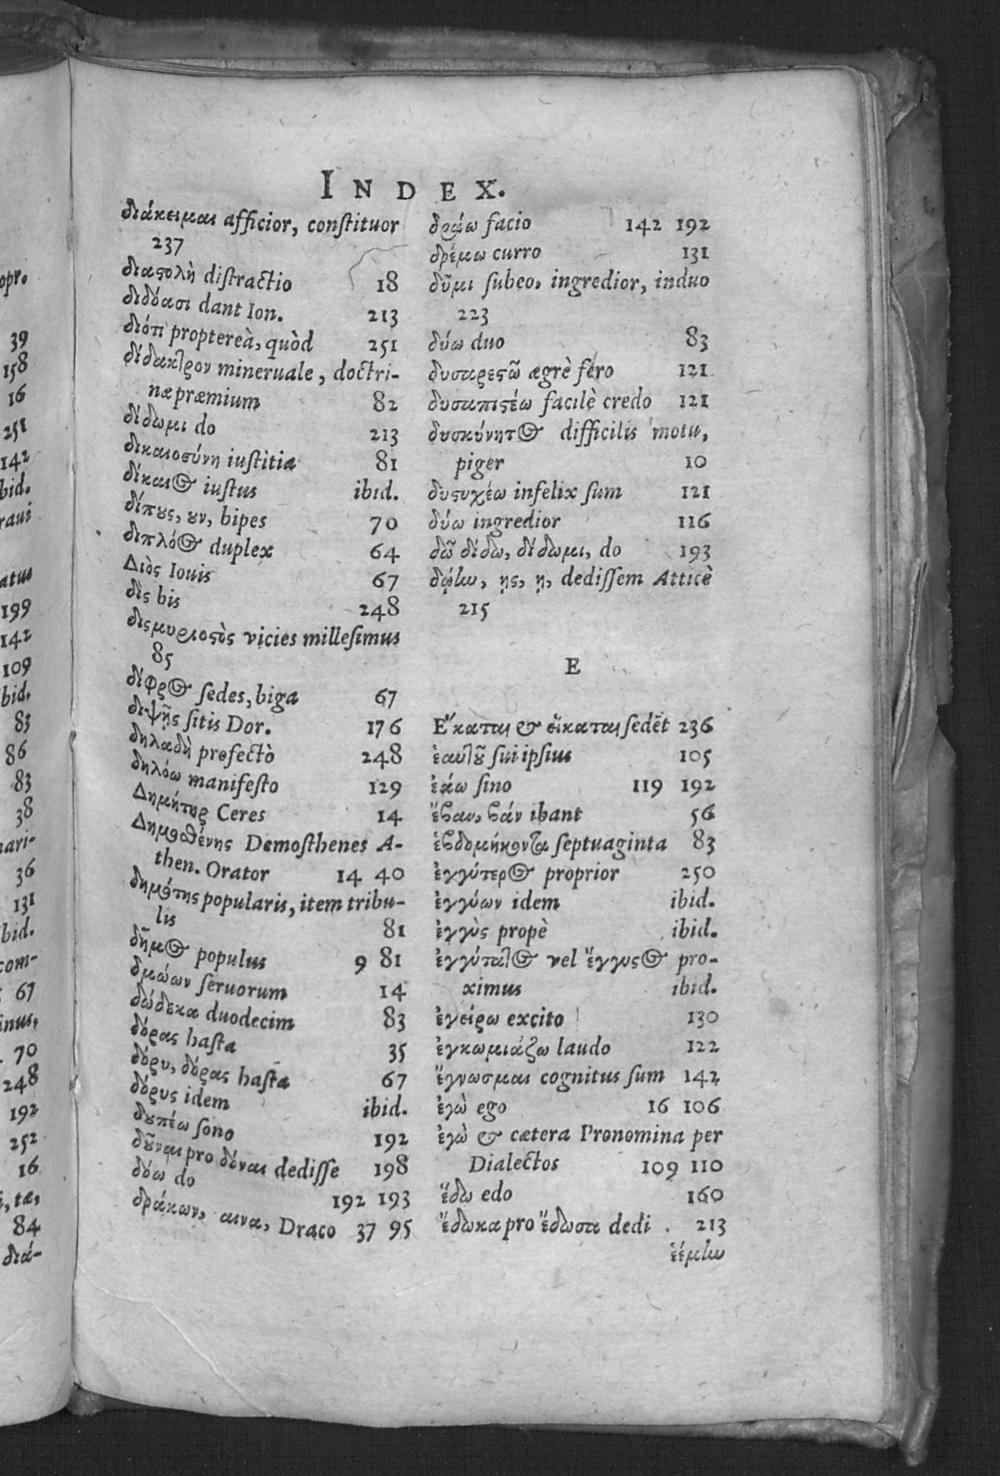 INDEX.
διάκειμαι afficior, constituor
237
διαστολὴ distractio 18
διδόασι dant Ion. 213
διότι propterea, quòd 251
δίδακτρον mineruale, doctri-
næ præmium 82
δίδωμι do 213
δικαιοσύνη iustitia 81
δίκαιος iustus ibid.
δίπους, ουν, bipes 70
διπλόος duplex 64
Διὸς Iouis 67
δὶς bis 248
δισμυριοστὸς vicies millesimus
85
δίφρος sedes, biga 67
διψῇς sitis Dor. 176
δηλαδὴ profectò 248
δηλόω manifesto 129
Δημήτηρ Ceres 14
Δημοσθένης Demosthenes A-
then. Orator 14 40
δημότης popularis, item tribu-
lis 81
δῆμος populus 9 81
δμώων seruorum 14
δώδεκα duodecim 83
δόρας hasta 35
δόρυ, δόρας hasta 67
δόρυς idem ibid.
δουπέω sono 192
δοῦναι pro δόναι dedisse 198
δόω do 192 193
δράκων, αινα, Draco 37 95
δράω facio 142 192
δρέμω curro 131
δῦμι subeo, ingredior, induo
223
δύω duo 83
δυσαρεστῶ ægrè fero 121
δυσαπιστέω facilè credo 121
δυσκύνητος difficilis motu,
piger 10
δυστυχέω infelix sum 121
δύω ingredior 116
δῶ δίδω, δίδωμι, do 193
δῴην, ῃς, ῃ, dedissem Atticè
215
E
Εἵαται & εἵαται sedēt 236
ἑαυτοῦ sui ipsius 105
ἐάω sino 119 192
ἔβαν, βάν ibant 56
ἑβδομήκοντα septuaginta 83
ἐγγύτερος proprior 250
ἐγγύων idem ibid.
ἐγγὺς propè ibid.
ἐγγύτατος vel ἔγγυστος pro-
ximus ibid.
ἐγείρω excito 130
ἐγκωμιάζω laudo 122
ἔγνωσμαι cognitus sum 142
ἐγὼ ego 16 106
ἐγὼ & cætera Pronomina per
Dialectos 109 110
ἔδω edo 160
ἔδωκα pro ἔδωσα dedi 213
ἑέμην
opr.
39
158
16
251
142
bid.
raui
atus
199
142
109
bid.
83
86
83
38
ari-
36
131
bid.
com-
67
inus,
70
248
192
252
16
, τα,
84
διά-